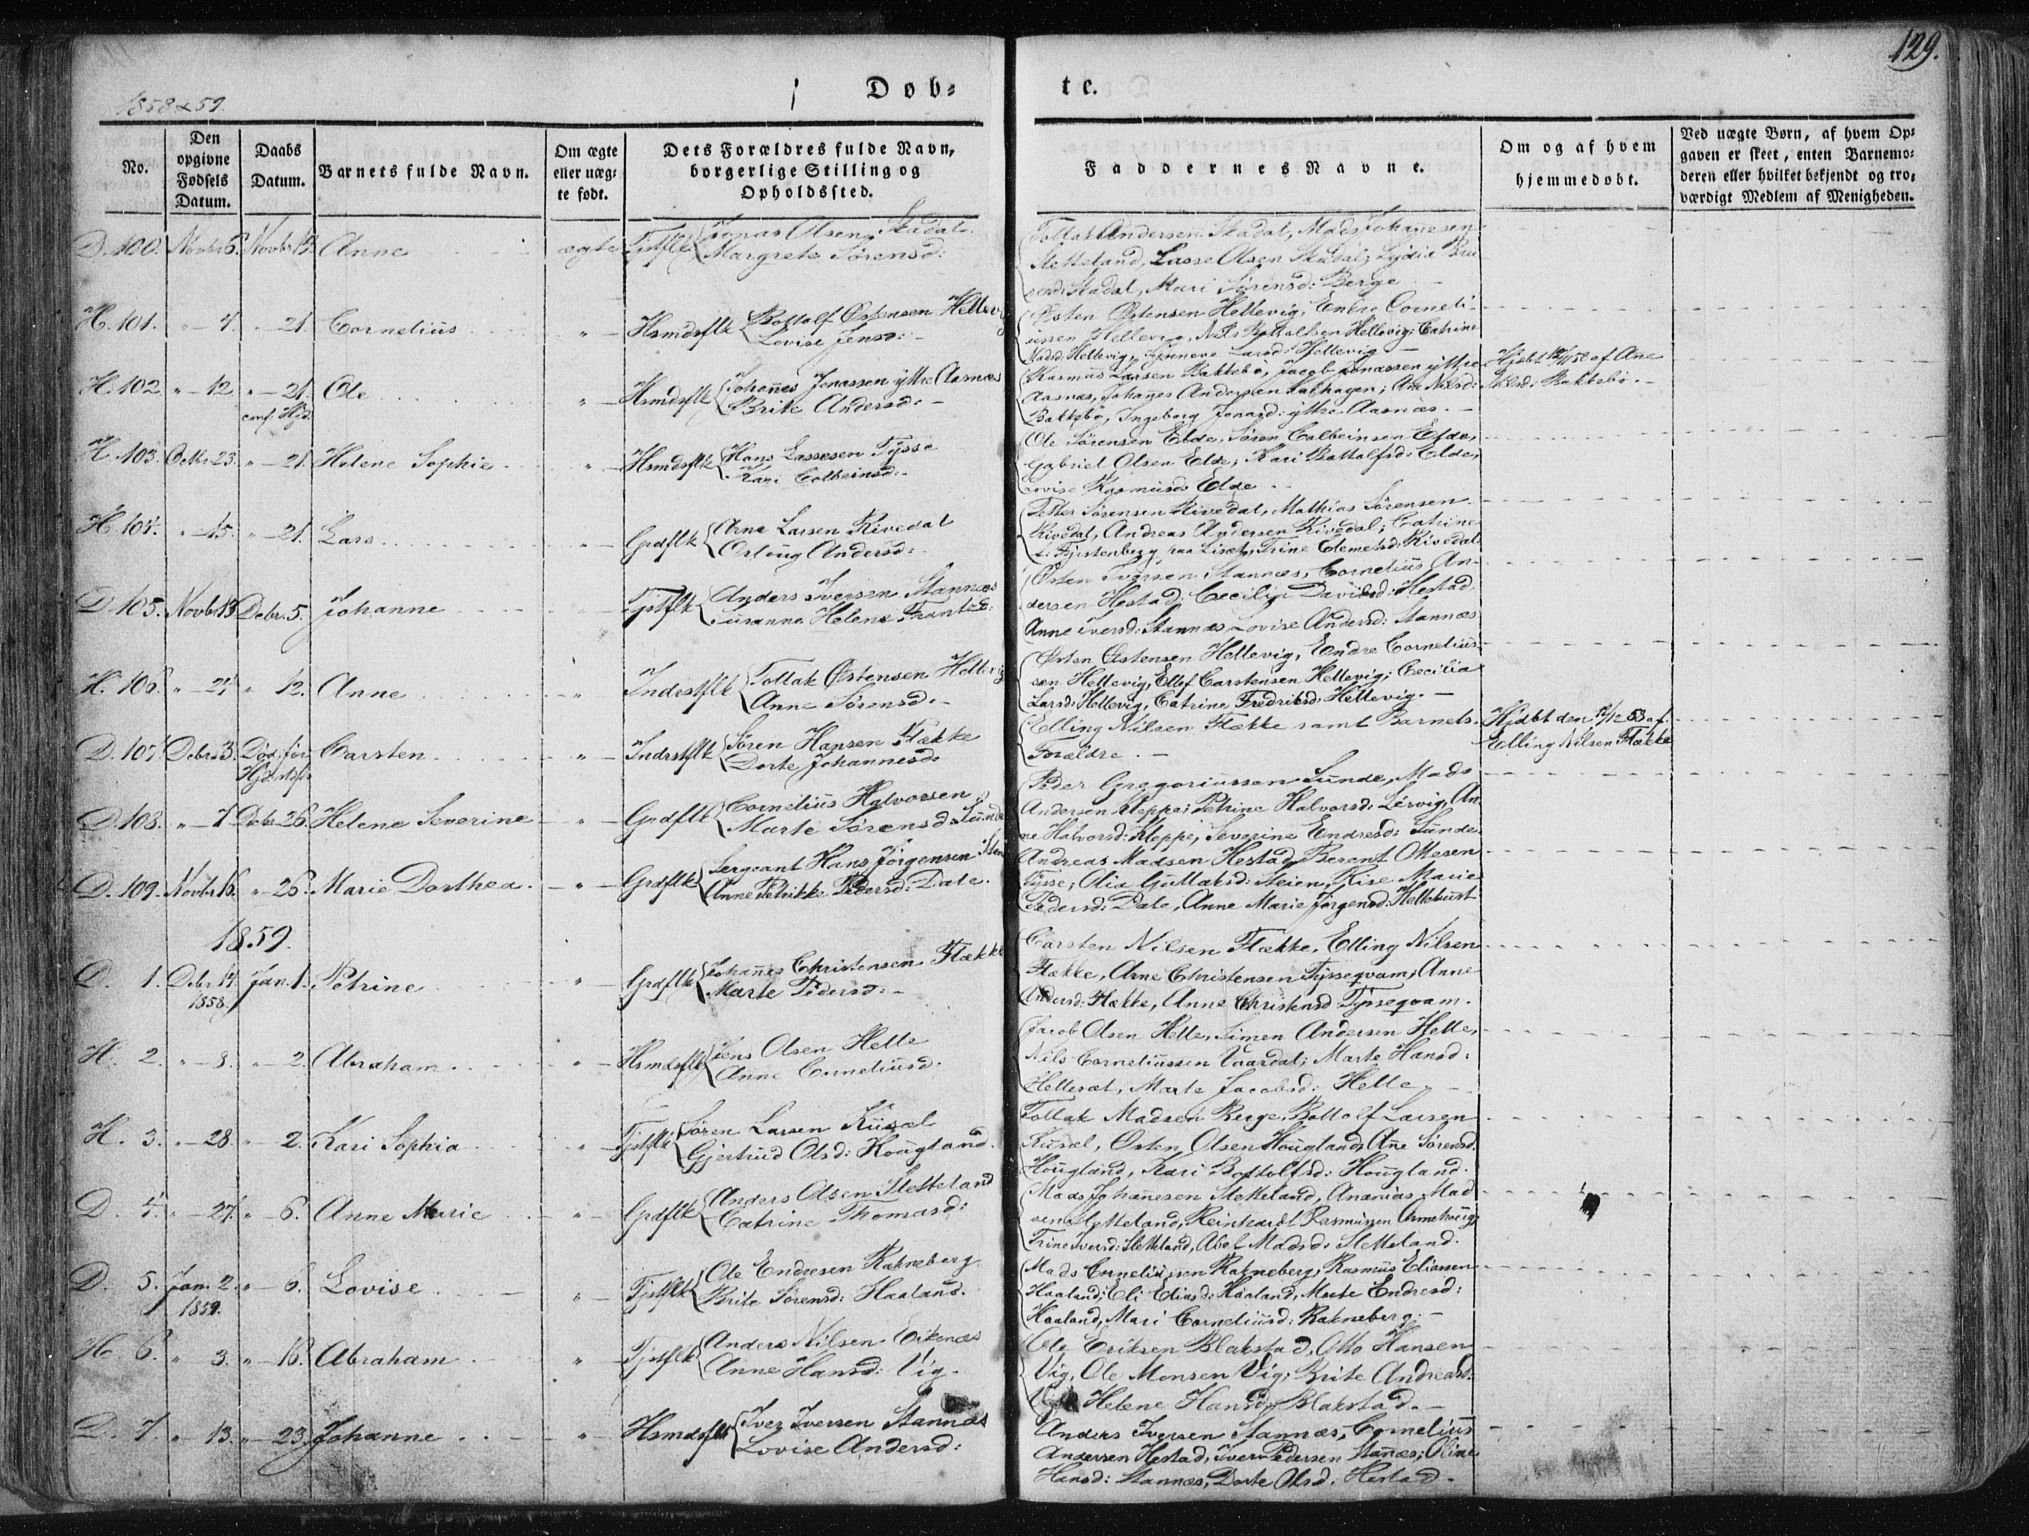 129.
1858 & 59.
Døb=
te.
No.
Den opgivne Fødsels Datum.
Daabs Datum.
Barnets fulde Navn.
Om ægte eller uæg- te født.
Dets Forældres fulde Navn, borgerlige Stilling og Opholdssted.
Faddernes Navne.
Om og af hvem hjemmedøbt.
Ved uægte Børn, af hvem Op= gaven er skeet, enten Barnemo= deren eller hvilket bekjendt og tro= værdigt Medlem af Menigheden.
D. 100. Novbr 6. Novbr Anne ægte Tjstflk Jonas Olsen Skadal.
Margrete Sørensd:
Tollak Andersen Skadal, Mads Johannesen
Sletteland, Lasse Olsen Skadal; Lydia
Skadal, Mari Sørensd: Berge.
H. 101. " 21. Cornelius " Hsmdsflk Bottolf Østensen Hellevig
Lovise Jensd:
Østen Østensen Hellevig, Endre Corneli-
ussen Hellevig, Nils Bottolfsen Hellevig; Catrine
Madsd: Hellevig, Synneve Larsd: Hellevig
H. 102 " 12. " 21. Ole " Hsmdsflk Johannes Jonassen ytre Aarnæs
conf. Hjd. Brite Andersd:
Rasmus Larsen Bakkebø, Jacob Jonassen ytre
Aarnæs, Johannes Andersen; Ane Nilsd:
Bakkebø, Ingeborg Jonasd: ytre Aarnæs.
Hjdbt af Ane
Nilsd: Bakkebø.
H. 103. Octbr 23. " 21. Helene Sophie " Hsmdsflk Hans Lassesen Tysse
Kari Colbeinsd:
Ole Sørensen Elde, Søren Colbeinsen Elde,
Gabriel Olsen Elde; Kari Bottolfsd: Elde,
Lovise Rasmusd: Elde
H. 104. " 15. " 21. Lars " Grdflk Arne Larsen Rivedal
Oslaug Andersd:
Peder Sørensen Rivedal, Mathias Sørensen
Rivedal, Andreas Andersen Rivedal; Catrine
paa Liset, Trine Clemetsd: Rivedal
D. 105. Novbr 13 Debr. 5. Johanne Tjstflk Anders Iversen Stannæs
Susanne Helene
Østen Iversen Stannæs, Cornelius An-
dersen Hestad; Cecilia Davidsd: Hestad
Anne Iversd: Stannæs, Lovise Andersd: Stannæs
H. 106. " 24 " 12. Anne " Inderstflk Tollak Østensen Hellevig
Anne Sørensd:
Østen Østensen Hellevig, Endre Cornelius-
sen Hellevig, Ellef Carstensen Hellevig; Cecilia
Larsd: Hellevig, Catrine Fredriksd: Hellevig.
D. 107. Debr. 3. Død før Carsten " Indrstflk Søren Hansen Flække
Dorte Johannesd:
Elling Nilsen Flække samt Barnets
Forældre.
Hjdbt den af
Elling Nilsen Flække
D. 108. " 7 Debr 26. Helene Severine " Grdflk Cornelius Halvorsen
Marte Sørensd: Sunde
Peder Gregoriussen Sunde, Mads
Andersen Kleppe; Petrine Halvorsd: Lervig, An-
ne Halvorsd: Kleppe, Severine Endresd: Sunde
D. 109. Novbr 16. " 26. Marie Dorthea. " Grdflk Sergeant Hans Jørgensen
Anne Pedersd: Dale.
Andreas Madsen Hestad, Berent Ottesen
Tysse; Olia Gullaksd: Steien, Marie
Pedersd: Dale, Anne Marie Jørgensd: Hellebust
1859.
D. 1. Debr 14. Jan. 1. Petrine " Grdflk Johannes Christensen Flække
1858. Marte Pedersd:
Carsten Nilsen Flække, Elling Nilsen
Flække, Arne Christensen Tysseqvam; Anne
Andersd: Flække, Anne Christensd Tysseqvam.
H. 2. " 8. " 2. Abraham " Hsmdsflk Jens Olsen Helle
Anne Corneliusd.
Jacob Olsen Helle, Simen Andersen Helle,
Nils Corneliussen Vaardal; Marte Hansd:
Hellesæt, Marte Jacobsd: Helle
H. 3. " 28. " 2. Kari Sophia " Tjstflk Søren Larsen
Gjertrud Olsd: Hougland.
Tollak Madsen Berge, Bottolf Larsen
Østen Olsen Hougland; Ane Sørensd.
Hougland, Kari Bottolfsd: Hougland.
D. 4. " 27. " 6. Anne Marie " Grdflk Anders Olsen Sletteland
Catrine Thomasd:
Mads Johannesen Sletteland, Ananias Mad
sen Sletteland, Reinhardt Rasmussen
Trine Iversd: Sletteland, Abel Madsd: Sletteland.
D. 5. Jan. 2. " 6. Lovise " Tjstflk Ole Endresen Rakneberg
1859. Brite Sørensd: Haaland.
Mads Corneliussen Rakneberg, Rasmus Eliassen
Haaland; Eli Eliasd: Haaland, Marte Endresd:
Haaland, Mari Corneliusd: Rakneberg.
H. 6. " 3. " 16. Abraham " Tjstflk Anders Nilsen Eikenæs
Anne Hansd: Vig.
Ole Eriksen Blakstad, Otto Hansen
Vig, Ole Monsen Vig; Brite Andreasd:
Helene Hansd: Blakstad.
D. 7. " 13. " 23. Johanne " Hsmdsflk Iver Iversen Stannæs
Lovise Andersd:
Anders Iversen Stannæs, Cornelius
Andersen Hestad, Iver Pedersen Stannæs; Oline
Hansd: Stannæs, Dorte Olsd. Hestad.